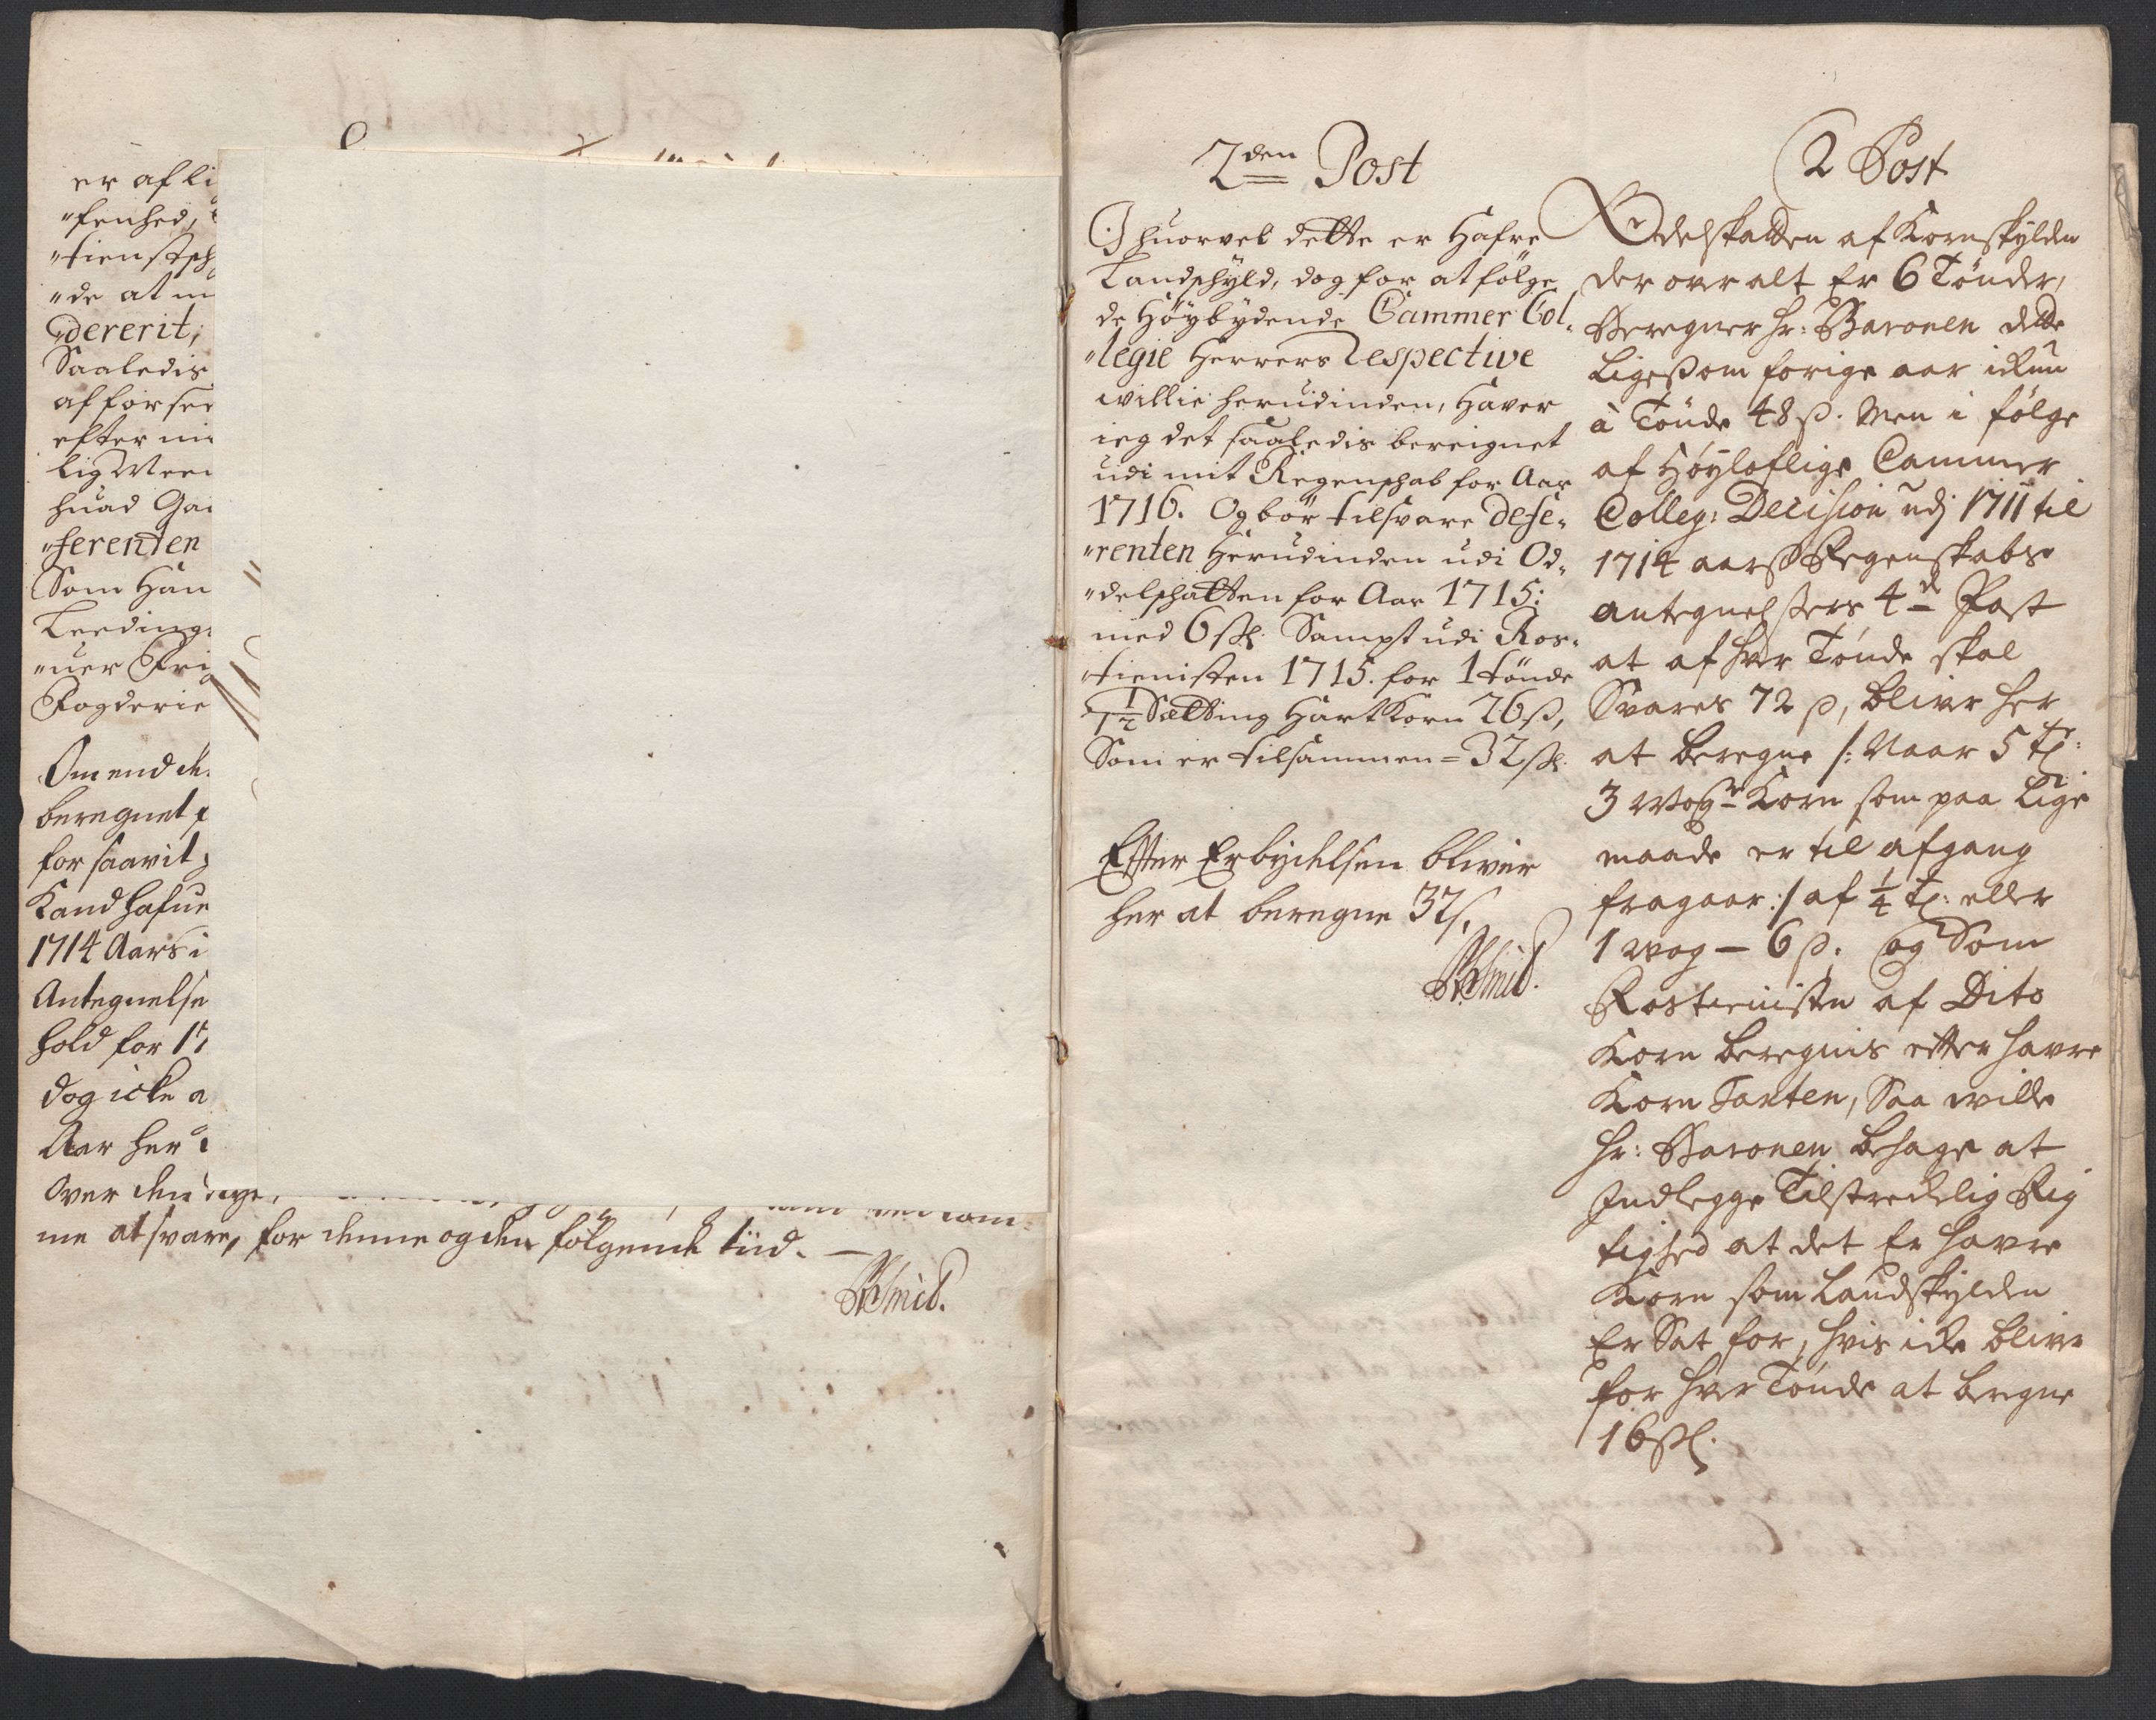 er af li
"fenhed,
"tienstsh
"de at m
"dererit,
Saaledis
af forser
efter mi
lig Meen
huad Gaa
"ferenten
Som Han
Leedings
"uer Frig
Fogderie
Om end de
beregnet p
for saavit
Kand hafue
1714 Aars i
Antegnelse
hold for 17
dog icke a
Aar her
over den
me at svare, for denne og den følgende tiid. —
2den Post
Ihuorvel dette er Hafre
Landschyld, dog for at følge
de Høybydende Cammer Col„
"legie Herrers Respective
willie herudinden, Haver
ieg det saaledis bereignet
udi mit Regenschab for Aar
1716. Og bør tilsvare defe„
"renten Herudinden udi Od„
"delschatten for Aar 1715:
med 6 sk. Sampt udi Ros„
"tienisten 1715. for 1 tønde
1 1/2 Setting Hart Korn 26 ß,
Som er tilsammen = 32 sk.
Efter Erbydelsen bliver
her at beregne 32 s.
2 Post
Odelskatten af Kornskylden
der over alt Er 6 Tønder,
Beregner hr: Baronen dette
Ligesom forige aar ickun
à Tønde 48 ß. Men i følge
af Høyloflige Cammer
Colleg: Decision udj 1711 til
1714 aars Regenskabs
antegnelssers 4de Post
at af hver Tønde skal
Svares 72 ß, bliver her
at beregne /: Naar 5 tr:
3 Wogr Korn som paa lige
maade er til afgang
fragaar :/ af 1/4 t: eller
1 wog — 6 ß. og Som
Rostienisten af Dito
Korn beregnis efter havre
Korn Taxten, Saa wille
hr: Baronen behage at
Indlegge Tilstreckelig Rig
tighed at det Er havre
Korn som Landskylden
Er Sat for, hvis icke bliver
for hver Tønde at beregne
16 sk.